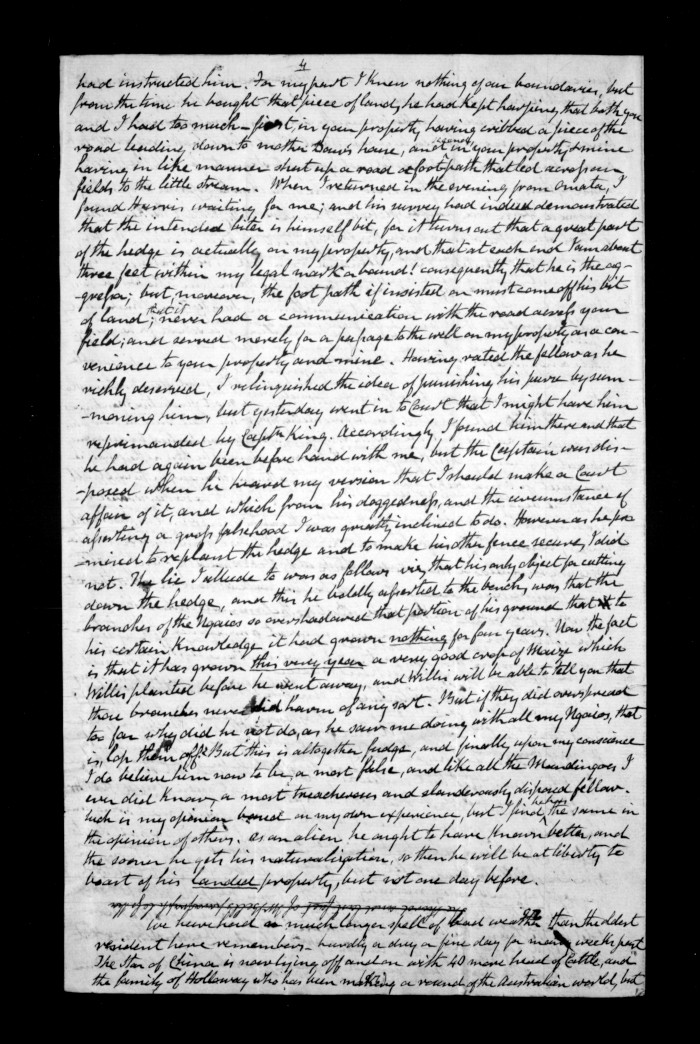 4
had instructed him. For my part I knew nothing of our boundaries, but
from the time he bought that piece of land, he had kept harping, that both you
and I had too much – first, in your property having cribbed a piece of the
road leading down to mother Daws house, and in your property & mine
having in like manner shut up a road or footpath that led across our
fields to the little stream. When I returned in the evening from Omata, I
found Harris waiting for me; and his survey had indeed demonstrated
that the intended biter is himself bit, for it turns out that a great part
of the hedge is actually on my property, and that at each end I am about
three feet within my legal mark or bound! consequently that he is the ag-
gressor; but moreover, the foot path if insisted on must come off his bit
of land; that it never had a communication with the road across your
field; and served merely for a passage to the well on my property as a con-
venience to your property and mine. Having rated the fellow as he
richly deserved, I relinquished the idea of punishing his purse by sum-
-moning him, but yesterday went in to Court that I might have him
reprimanded by Captn King. Accordingly I found him there and that
he had again been before hand with me, but the Captain was dis-
-posed when he heard my version that I should make a Court
affair of it, and which from his doggedness, and the circumstance of
asserting a gross falsehood I was greatly inclined to do. However as he pro
-mised to replant the hedge and to make his other fence secure, I did
not. The lie I allude to was as follows viz, that his only object for cutting
down the hedge, and this he boldly asserted to the bench, was that the
branches of the Ngaios so overshadowed that portion of his ground that to
his certain knowledge it had grown nothing for four years. Now the fact
is that it has grown this very year a very good crop of Maize which
Willis planted before he went away, and Willis will be able to tell you that
those branches never did harm of any sort. But if they did overspread
too far why did he not do, as he saw me doing with all my Ngaios, that
is, lop them off? But this is altogether fudge, and finally upon my conscience
I do believe him now to be, a most false, and like all the Mandingoes I
ever did know, a most treacherous and slanderously disposed fellow.
Such is my opinion based on my own experience, but I find he has the same in
the opinion of others. As an alien he ought to have known better, and
the sooner he gets his naturalization, so then he will be at liberty to
boast of his landed property, but not one day before.
We have had a much longer spell of bad weather than the oldest
resident here remembers – hardly a day a fine day for many weeks past
The Star of China is now lying off and on with 40 more head of Cattle, and
the family of Holloway who has been making a round of the Australian world, but